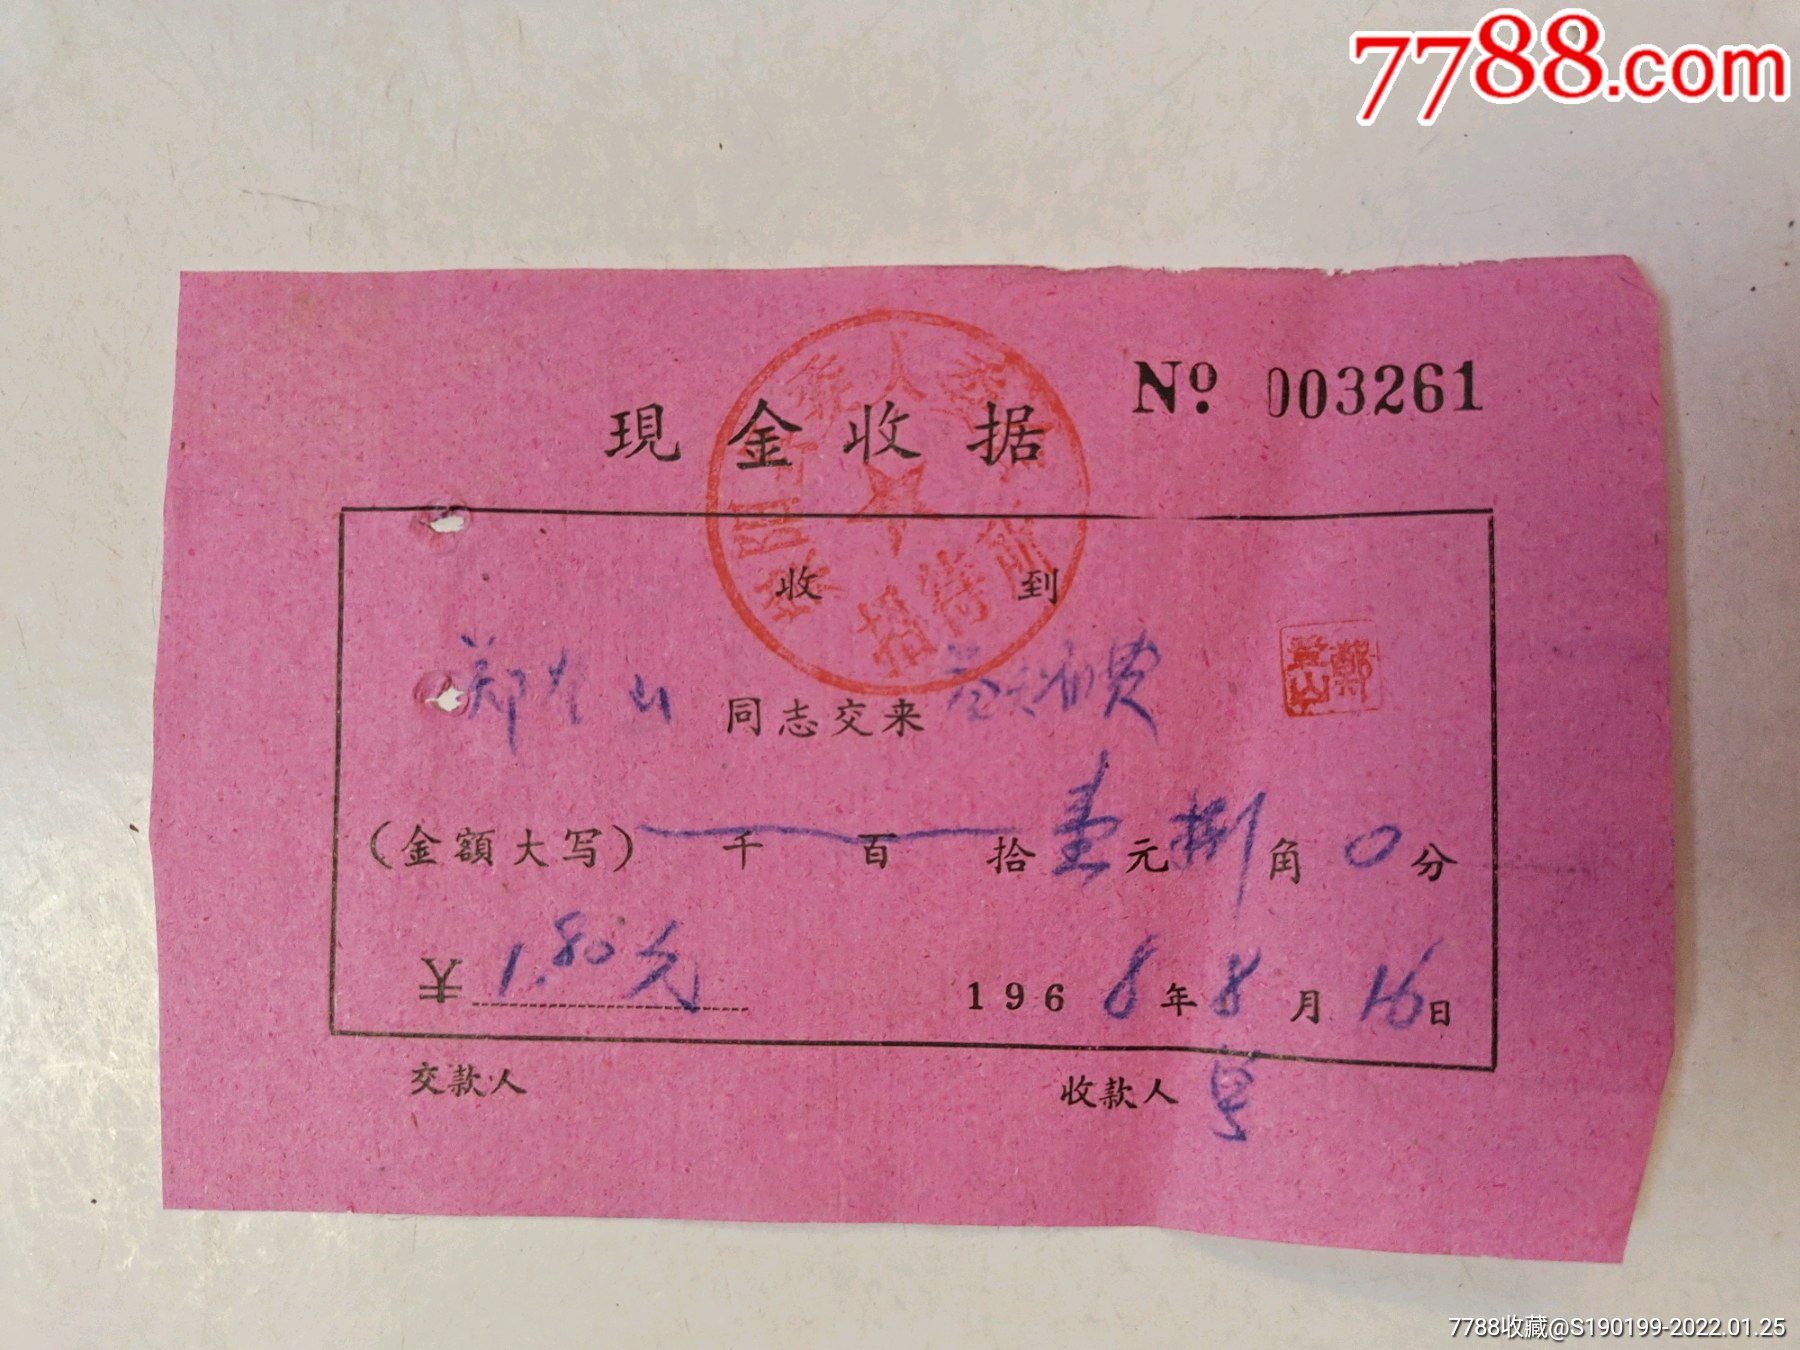 7788.com
现金收据
№ 003261
收到
郑 山 同志交来 费
(金額大写) 千 百 拾 壹 元 捌 角 0 分
¥ 1.80元 1968年8月16日
交款人 收款人
招待所
7788收藏@S190199-2022.01.25